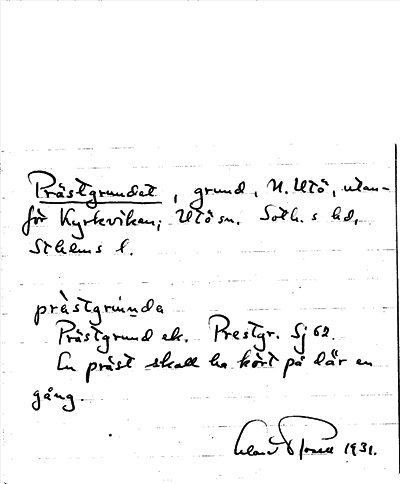 Prästgrundet, grund, N. Utö, utan-
för Kyrkviken, Utö sn. Soth.s hd,
Sthlms l.
prästgrunda
Prästgrund ek. Prestgr. Sj 62.
En präst skall ha kört på där en
gång.
1931.